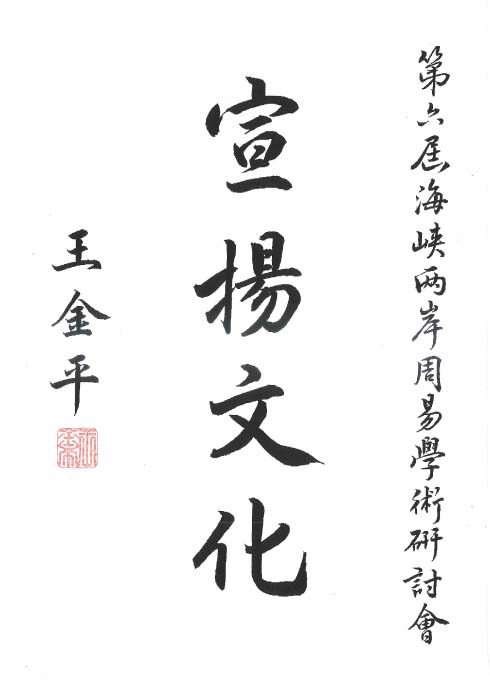 第六屆海峽两岸周易學術研討會
宣揚文化
王金平